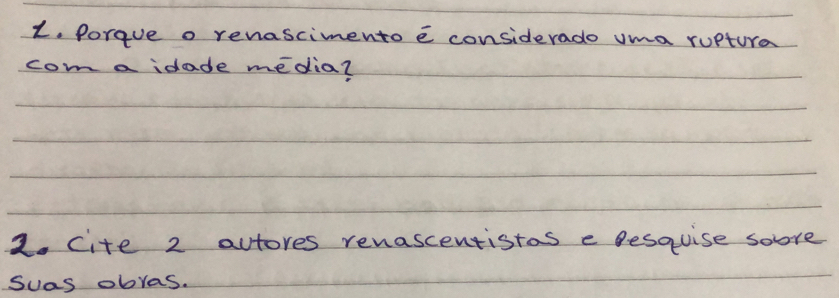 1. Porque o renascimento é considerado uma ruptura
com a idade média?
2. Cite 2 autores renascentistas e Pesquise sobre
suas obras.